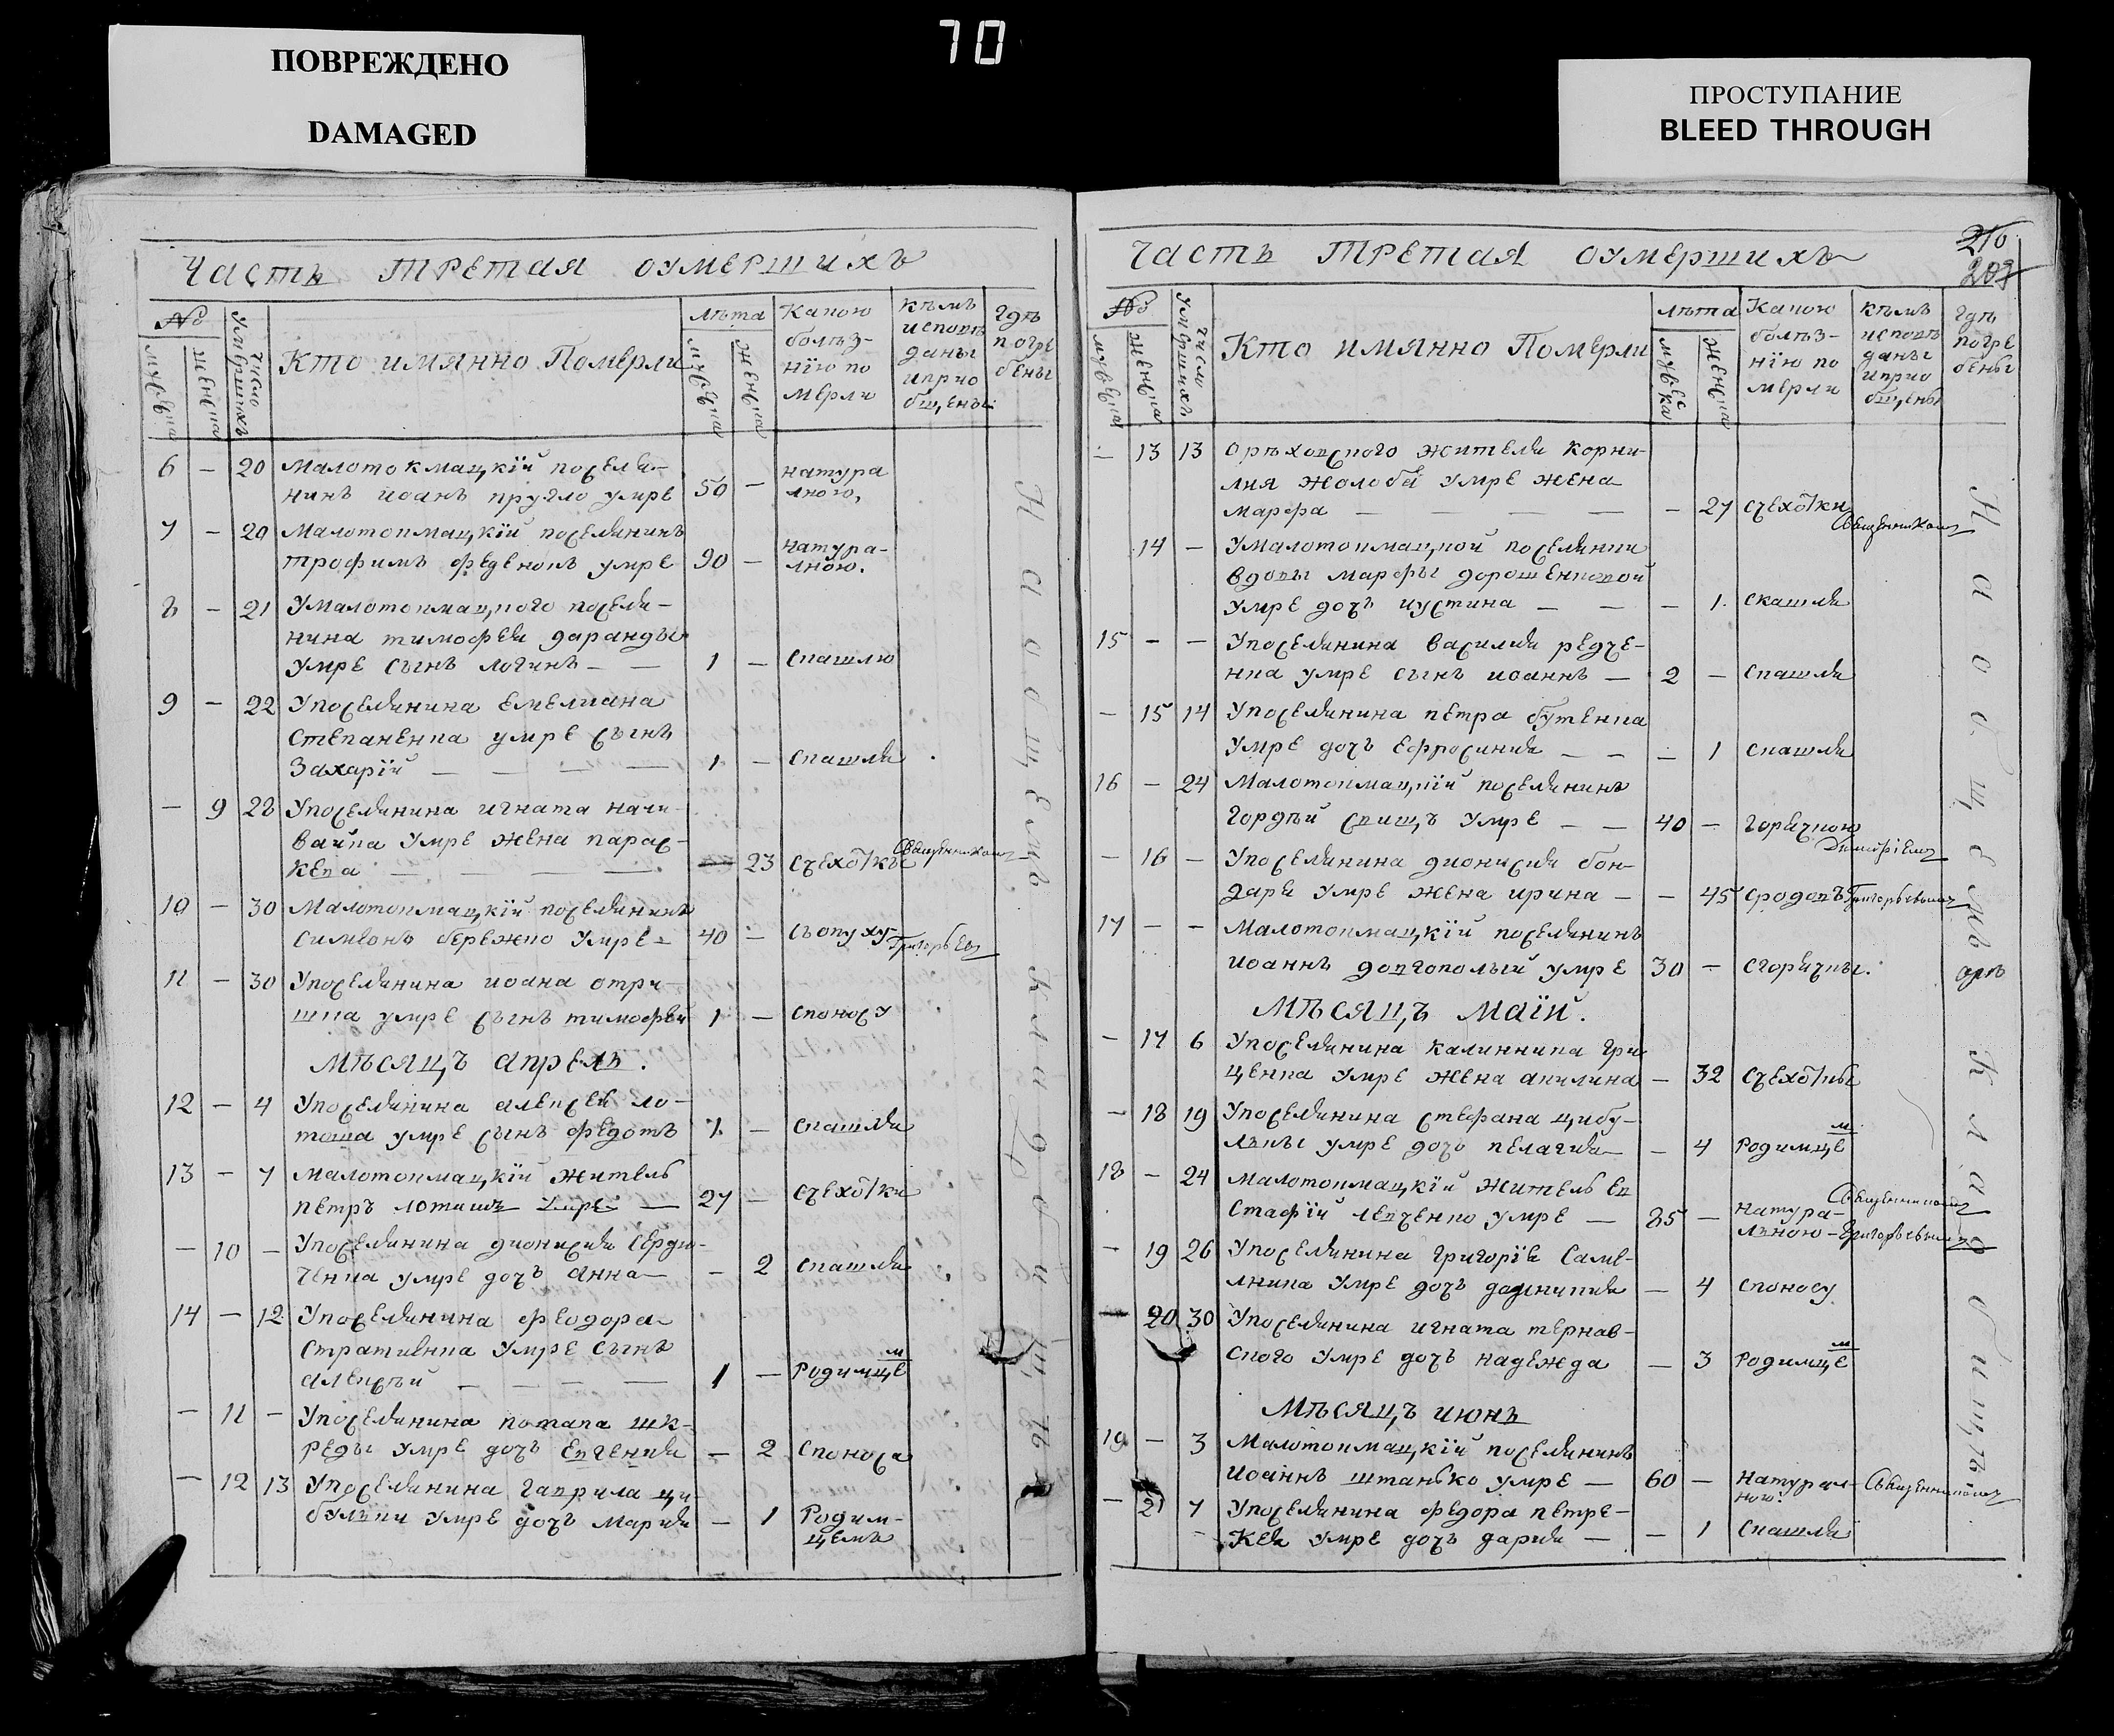 70
ПОВРЕЖДЕНО
DAMAGED
ПРОСТУПАНИЕ
BLEED THROUGH
Часть третая оумершихъ
№
мужеска
женска
число умершихъ
Кто имянно Померли
лѣта
мужеска
женска
Какою болѣз-
нію по
мерли
кѣмъ
исповѣ
даны
иприо
бщены
гдѣ
погре
бены
6 – 20 Малотокмацкїй посели-
нинъ иоанъ кругло умре 50 – натура
лною,
7 – 20 Малотокмацкїй поселянинъ
трофимъ феденокъ умре 90 – натура-
лною.
8 – 21 Умалотокмацкого посели-
нина тимофея даранды
умре сынъ логинъ – – 1 – скашлю
9 – 22 Упоселянина емелиана
Степаненка умре сынъ
Захарїй – – – – 1 – скашля
– 9 28 Упоселянина игната начи-
вайка умре жена парас-
кева – – – 23 Счехотки Священникомъ
10 – 30 Малотокмацкїй поселянинъ
симеонъ бережно умре – 40 – съопуху- Григорьев
11 – 30 Упоселянина иоана отри-
шка умре сынъ тимофей 1 – споносу
Мѣсяцъ апрель.
12 – 4 Упоселянина алексея ло-
тоша умре сынъ федотъ 1. – скашля
13 – 7 Малотокмацкїй житель
петръ лотишъ умре – 27 – счехотки
– 10 – Упоселянина дионисия сердю-
ченка умре дочь анна – – 2 скашля
14 – 12 Упоселянина феодора
стративнка умре сынъ
алексѣй – – – – 1 – Родимцем
– 11 – Упоселянина потапа шк-
реды умре дочь евгения – 2 споноса
– 12 13 Упоселянина гаврила ци-
булъки умре дочь Мария – 1 Родим-
цемъ
На общемъ кладбищѣ
Часть третая оумершихъ
210
209
№
мужеска
женска
число умершихъ
Кто имянно Померли
лѣта
мужес
ка
женска
Какою
болѣз-
нїю по
мерли
кѣмъ
исповѣ
даны
иприо
бщены
гдѣ
погре
бены
– 13 13 Орѣховского жителя корни-
лия жолоба умре жена
марфа – – – – – 27 счехотки Священникомъ
14 – Умалотокмацкой поселянки
вдовы марфы дорошенковой
умре дочь иустина – – – 1. скашля
15 – – Упоселянина василия редче-
нка умре сынъ иоаннъ – 2 – скашля
– 15 14 Упоселянина петра бутенка
умре дочь ефросиния – – – 1 скашля
16 – 24 Малотокмацкїй поселянинъ
гордѣй свищъ умре – – 40 – горячкою Димитріемъ
– 16 – Упоселянина дионисия бон-
даря умре жена ирина – – 45 сродовъ Григорьевымъ
17 – – Малотокмацкїй поселянинъ
иоаннъ довгополый умре 30 – сгорячкы.
Мѣсяцъ маїй.
– 17 6 Упоселянина калинника гри-
ценка умре жена акилина – 32 счехотки
– 18 19 Упоселянина стефана цибу-
лъкы умре дочь пелагия – – 4 Родимцем
18 – 24 Малотокмацкїй житель ев
стафїй левченко умре – 85 – натура-
льною – Священникомъ
Григорьевымъ
– 19 26 Упоселянина григорїя саме-
лника умре дочь – 4 споносу
– 20 30 Упоселянина игната тернав-
ского умре дочь надежда – 3 Родимцем
Мѣсяцъ июнь
19 – 3 Малотокмацкїй поселянинъ
иоаннъ штанько умре – 60 – натурал-
ною. Священникомъ
– 21 7 Упоселянина федора петре-
кея умре дочь дария – – 1 скашля
На общемъ кладбищѣ